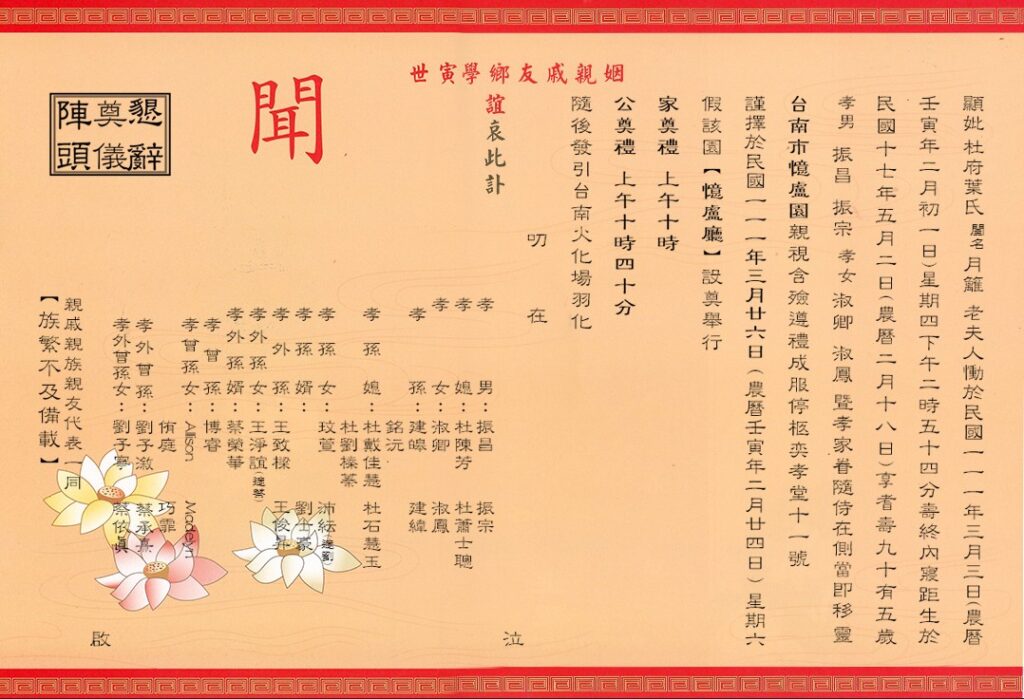 顯妣杜府葉氏閨名月籬 老夫人慟於民國一一一年三月三日(農曆
壬寅年二月初一日)星期四下午二時五十四分壽終內寢距生於
民國十七年五月二日(農曆二月十八日)享耆壽九十有五歲
孝男 振昌 振宗 孝女 淑卿 淑鳳 暨孝家眷隨侍在側當即移靈
台南市憶盧園親視含殮遵禮成服停柩奕孝堂十一號
謹擇於民國一一一年三月廿六日(農曆壬寅年二月廿四日)星期六
假該園【憶盧廳】設奠舉行
家奠禮 上午十時
公奠禮 上午十時四十分
隨後發引台南火化場羽化
叨 在
姻親戚友鄉學寅世
誼哀此訃
聞
懇辭
奠儀
陳頭
孝 男:振昌 振宗
孝 媳:杜陳芳 杜蕭士聰
孝 女:淑卿 淑鳳
孝 孫:建皞 建緯
銘沅
孝 孫 媳:杜戴佳慧 杜石慧玉
杜劉榛蓁
孝 孫 女:玟萱 沛紜(適劉)
孝 孫 婿: 劉士豪
孝 外 孫:王致樑 王俊昇
孝 外 孫 女:王淨誼(適蔡)
孝 外 孫 婿:蔡榮華
孝 曾 孫:博睿
孝 曾 孫 女:Allison Madelyn
侑庭 巧霏
孝 外 曾 孫:劉子漵 蔡承熹
孝外曾孫女:劉子寧 蔡依真
親戚親族親友代表一同
【族繁不及備載】
泣
啟